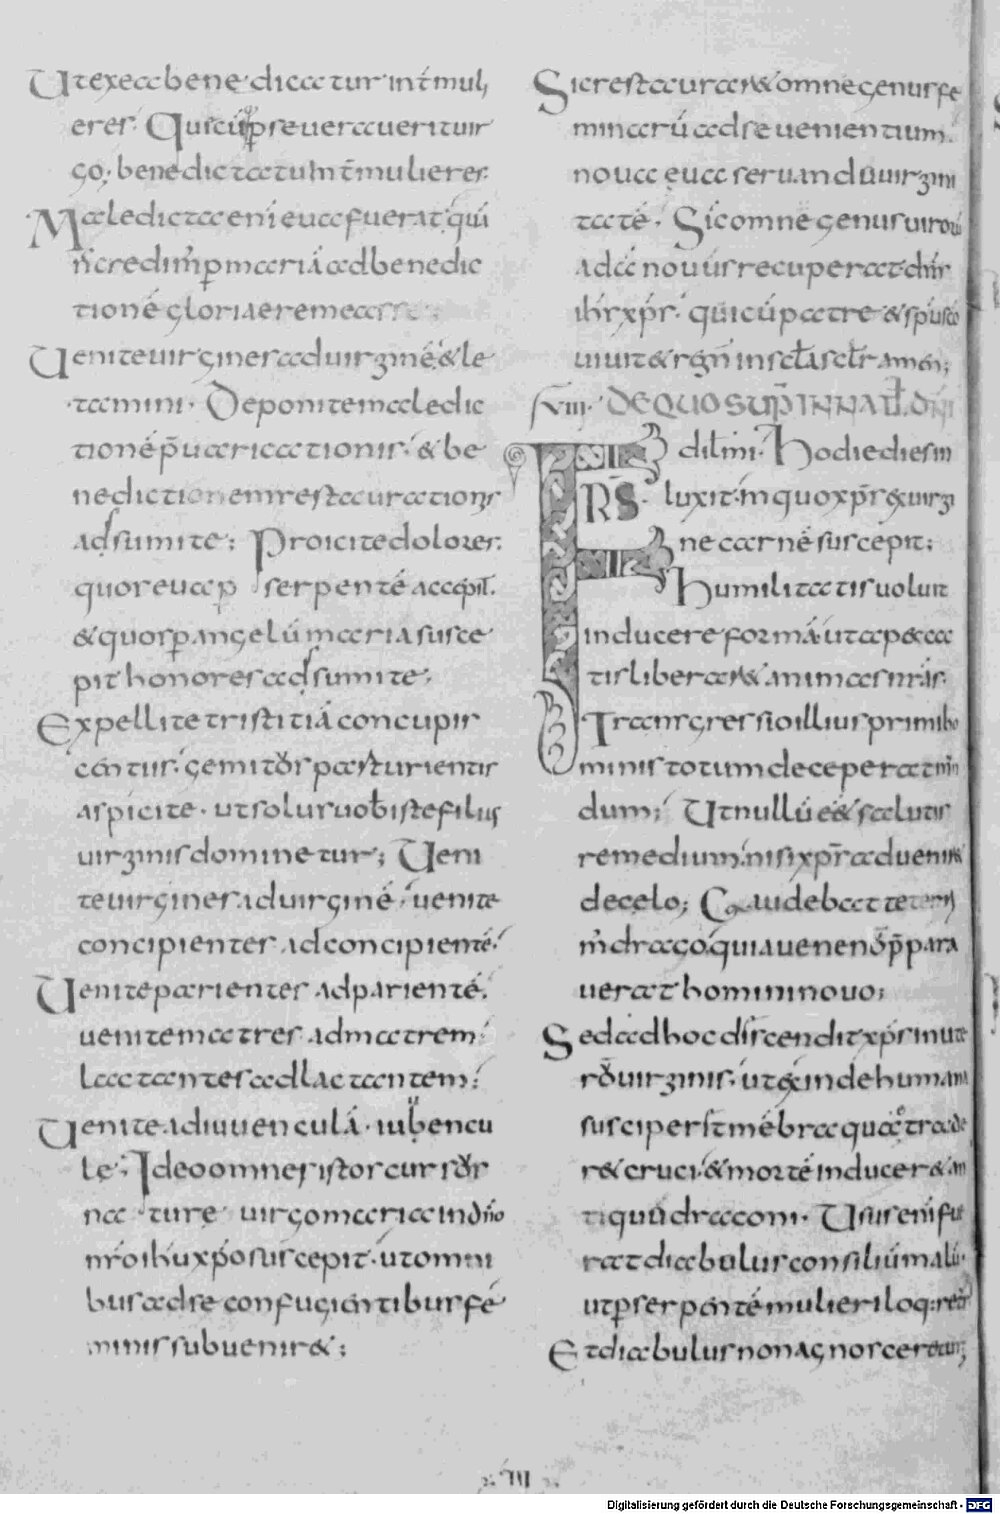 Ut exea benedicatur int̄ mul
eres. Qui
go. benedicta tu int̄ mulieres
Maledicta eni eua fuerat quā
n̄ credim̄ p̱ mariā ad benedic
tionē gloriae remeasse
Uenite uirgines ad uirginē & le
tamini. Deponite maledic
tionē p̄uaricationis. & be
nedictionem restaurationis
adsumite; Proicite dolores.
quos eua p serpentē accepit.
& quos p̱ angelū maria susce
pit honores adsumite.
Expellite tristitiā concupis
centiis. gemitus parturientis
aspicite. ut solus uob iste filius
uirginis dominetur; Ueni
te uirgines ad uirginē. uenite
concipientes ad concipientē.
Uenite parientes ad parientē.
uenite matres ad matrem.
lactantes ad lactantem;
Uenite ad iuuenculā. iubencu
le. Ideo omnes istos cursus
na ture uirgo maria in dn̄o
nr̄o ihu xpo suscepit. ut omni
bus ad se confugientibus fe
minis subuenir&;
Sic restaurar& omne genus fe
minarū ad se uenientium.
noua eua seruando uirgini
tatē. Sic omne genus uirorū
adā nouus recuperat dn̄s
ihs xp̄s. qui cū patre & spu sco
uiuit & regn̄ in sc̄la sc̄lr amen;
XVIII. DE QUO SUP̄ IN NATL DN̄I
FRS dil̄mi. Hodie dies in
luxit. in quo xp̄s ex uirgi
ne carnē suscepit;
Humilitatis uoluit
inducere formā. ut a pecca
tis liberar& animas nr̄as.
Transgressio illius primi ho
minis totum deceperat mun
dum; Ut nullū e&̄ salutis
remedium. nisi xp̄s aduenir&
de celo; Cauidebat te
m̄ draco. quia uenenū p̄para
uerat homini nouo;
Sed ad hoc discendit xp̄s in ute
rū uirginis. ut exinde humana
susciper& mēbra quae trade
r& cruci. & mortē inducer& an
tiquū draconi. Usus enī fue
rat diabulus consiliū malū.
ut p̱ serpentē mulieri loq:retr
Et diabulus non agnosceretur;
VIII
Digitalisierung gefördert durch die Deutsche Forschungsgemeinschaft - DFG